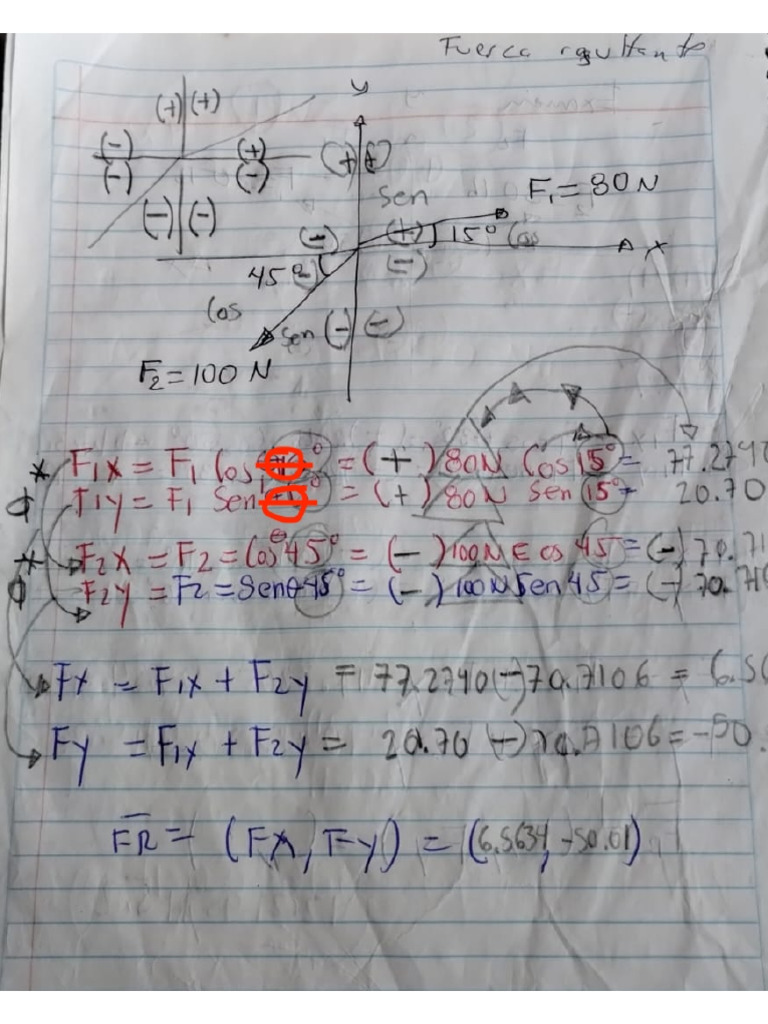 Fuerca resultante
y
(+) (+)
(-) (+) (+) (+)
(-) (-)
sen F₁ = 80 N
(-) (-)
(-) (+) 15° Cos x
45° (-)
Cos
sen (-) (-)
F₂ = 100 N
* F₁x = F₁ Cos ° = (+) 80N Cos 15° = 77.2740
ϕ F₁y = F₁ Sen ° = (+) 80N Sen 15° = 20.70
* F₂x = F₂ = Cosθ 45° = (-) 100N Cos 45 = (-) 70.71
ϕ F₂y = F₂ = Senθ 45° = (-) 100N Sen 45 = (-) 70.710
Fx = F₁x + F₂y = 77.2740 (-) 70.7106 = 6.56
Fy = F₁x + F₂y = 20.70 (-) 70.7106 = -50.
FR = (Fx, Fy) = (6.5634, -50.01)